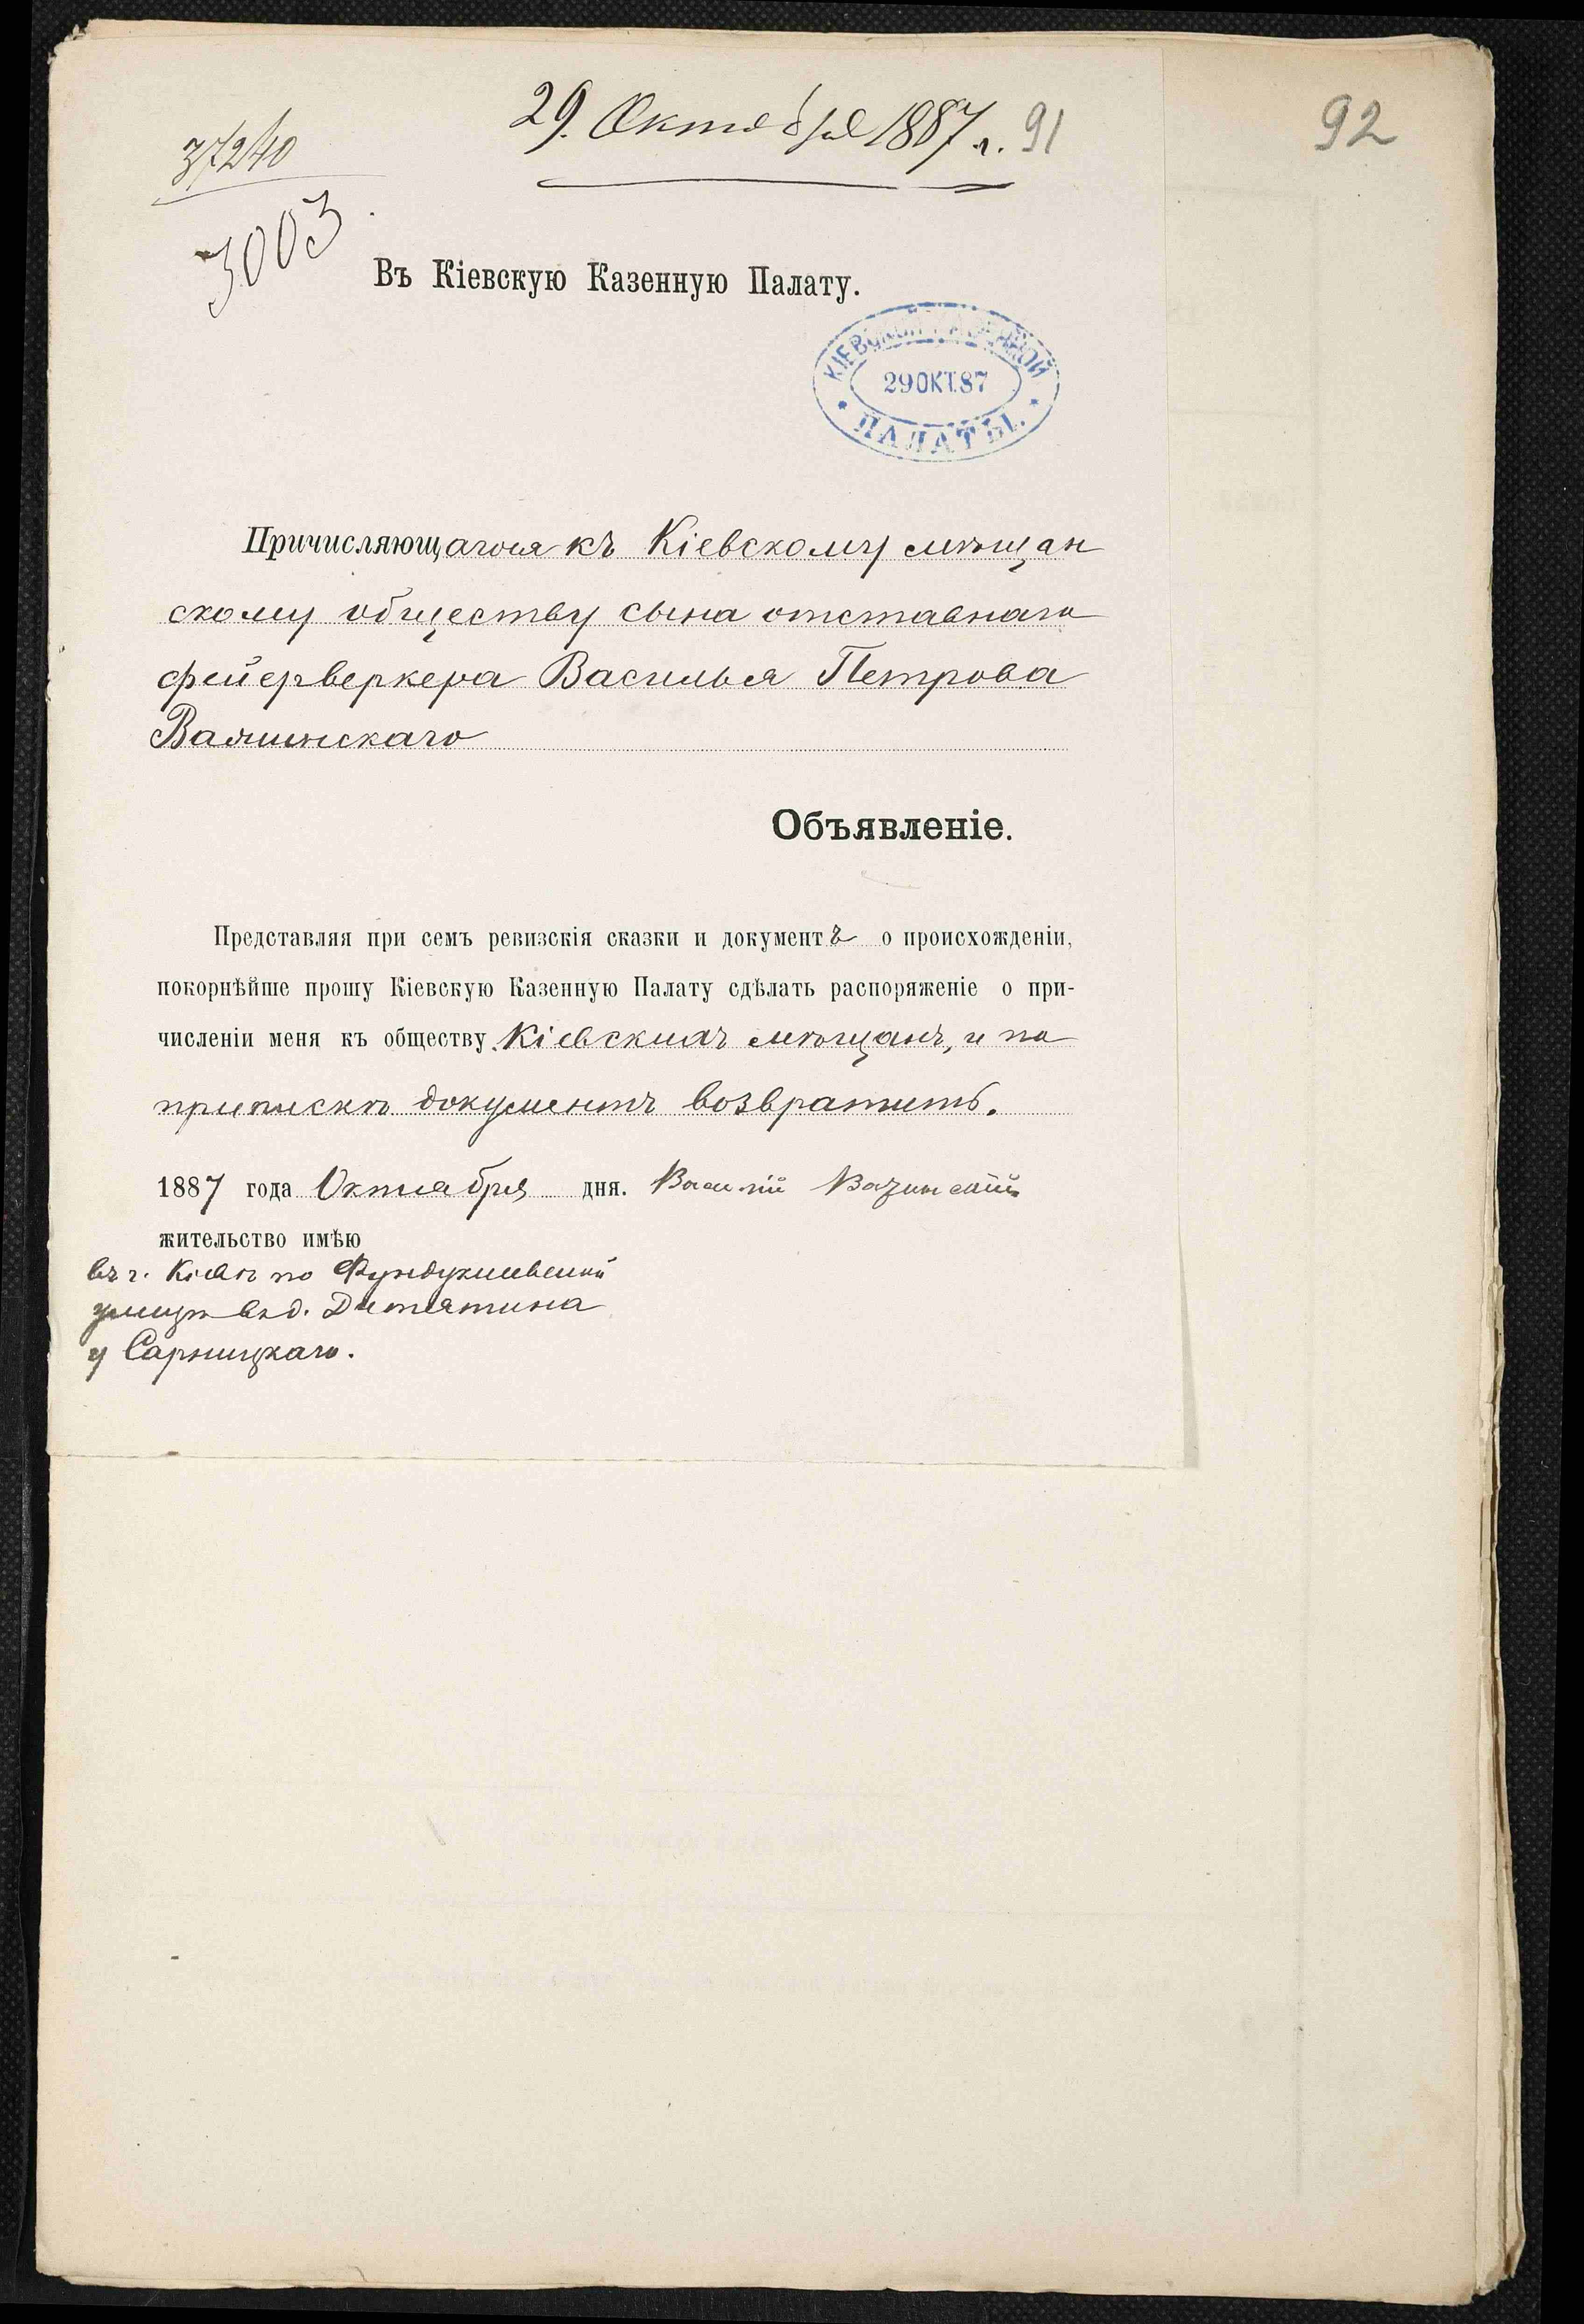 29. Октября 1887 г. 91
92
37240
3003
Въ Кіевскую Казенную Палату.
КІЕВСКОЙ КАЗЕННОЙ
29 ОКТ. 87
ПАЛАТЫ.
Причисляющагося къ Кіевскому мѣщан
скому обществу сына отставнаго
фейерверкера Василья Петрова
Объявленіе.
Представляя при семъ ревизскія сказки и документъ о происхожденіи,
покорнѣйше прошу Кіевскую Казенную Палату сдѣлать распоряженіе о при-
численіи меня къ обществу Кіевскихъ мѣщанъ, и по
припискѣ документъ возвратить.
1887 года Октября дня. Василій Вазинскій
жительство имѣю
въ г. Кіевѣ по Фундуклеевской
улицѣ въ д. Дитятина
у Сарницкаго.